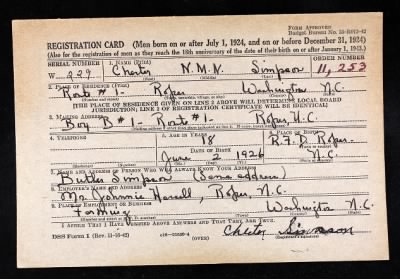 Form Approved
Budget Bureau No. 33-R012-42
REGISTRATION CARD (Men born on or after July 1, 1924, and on or before December 31, 1924)
(Also for the registration of men as they reach the 18th anniversary of the date of their birth on or after January 1, 1925.)
SERIAL NUMBER 1. NAME (Print) ORDER NUMBER
W-229 Chester N.M.N. Simpson 11,253
2. PLACE OF RESIDENCE (Print)
Route #1- Roper Washington N.C.
[THE PLACE OF RESIDENCE GIVEN ON LINE 2 ABOVE WILL DETERMINE LOCAL BOARD
JURISDICTION; LINE 2 OF REGISTRATION CERTIFICATE WILL BE IDENTICAL]
3. MAILING ADDRESS
Box B#1- Route #1- Roper N.C.
4. TELEPHONE 5. AGE IN YEARS 6. PLACE OF BIRTH
18 R.F.D Roper
DATE OF BIRTH
June 2 1926 N.C.
7. NAME AND ADDRESS OF PERSON WHO WILL ALWAYS KNOW YOUR ADDRESS
Butler Simpson (Same address)
8. EMPLOYER'S NAME AND ADDRESS
Mr. Johnnie Harrell, Roper, N.C.
9. PLACE OF EMPLOYMENT OR BUSINESS
Farming Washington N.C.
I AFFIRM THAT I HAVE VERIFIED ABOVE ANSWERS AND THAT THEY ARE TRUE.
DSS Form 1 (Rev. 11-16-42) (OVER) Chester Simpson